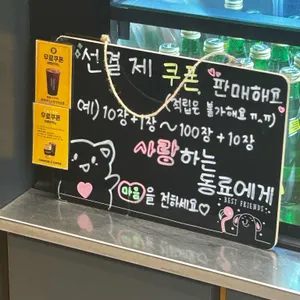 선결제 쿠폰 판매해요
(적립은 불가해요 ㅠ.ㅠ)
예) 10장+1장 ~ 100장+10장
사랑하는
동료에게
마음을 전하세요♡
BEST FRIENDS
무료쿠폰
무료쿠폰